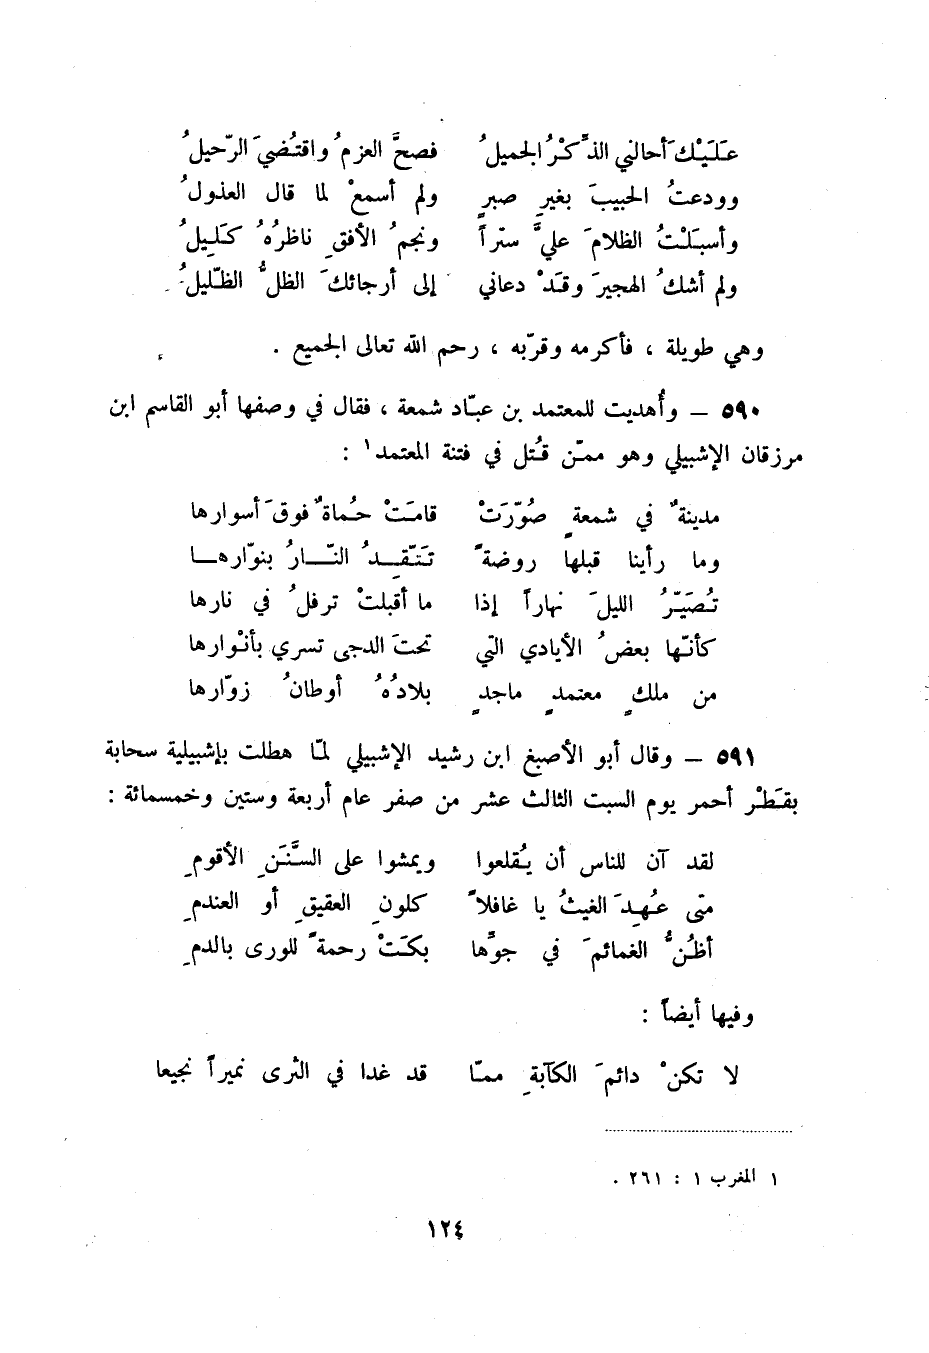 عَلَيْكَ أحالني الذِّكْرُ الجميلُ فصحَّ العزمُ واقتُضيَ الرّحيلُ
وودعتُ الحبيبَ بغيرِ صبرٍ ولم أسمعْ لما قال العذولُ
وأسبَلْتُ الظلامَ عليَّ سترًا ونجمُ الأفقِ ناظرُهُ كَلِيلُ
ولم أشكُ الهجيرَ وقَدْ دعاني إلى أرجائكَ الظلُّ الظّليلُ
وهي طويلة ، فأكرمه وقرّبه ، رحم الله تعالى الجميع .
٥٩٠ – وأُهديت للمعتمد بن عبّاد شمعة ، فقال في وصفها أبو القاسم ابن
مرزقان الإشبيلي وهو ممّن قُتل في فتنة المعتمد١ :
مدينةٌ في شمعةٍ صُوِّرَتْ قامَتْ حُماةٌ فوقَ أسوارها
وما رأينا قبلها روضةً تَتّقِدُ النّارُ بنوّارها
تُصَيِّرُ الليلَ نهارًا إذا ما أقبلتْ ترفلُ في نارها
كأنّها بعضُ الأيادي التي تحتَ الدجى تسري بأنْوارها
من ملكٍ معتمدٍ ماجدٍ بلادُهُ أوطانُ زوّارها
٥٩١ – وقال أبو الأصبغ ابن رشيد الإشبيلي لمّا هطلت بإشبيلية سحابة
بقَطْر أحمر يوم السبت الثالث عشر من صفر عام أربعة وستين وخمسمائة :
لقد آن للناس أن يُقلعوا ويمشوا على السَّنَنِ الأقومِ
متى عُهِدَ الغيثُ يا غافلاً كلونِ العقيقِ أو العندمِ
أظُنُّ الغمائمَ في جوِّها بكَتْ رحمةً للورى بالدمِ
وفيها أيضاً :
لا تكنْ دائمَ الكآبةِ ممّا قد غدا في الثرى نميراً نجيعا
١ المغرب ١ : ٢٦١ .
١٢٤